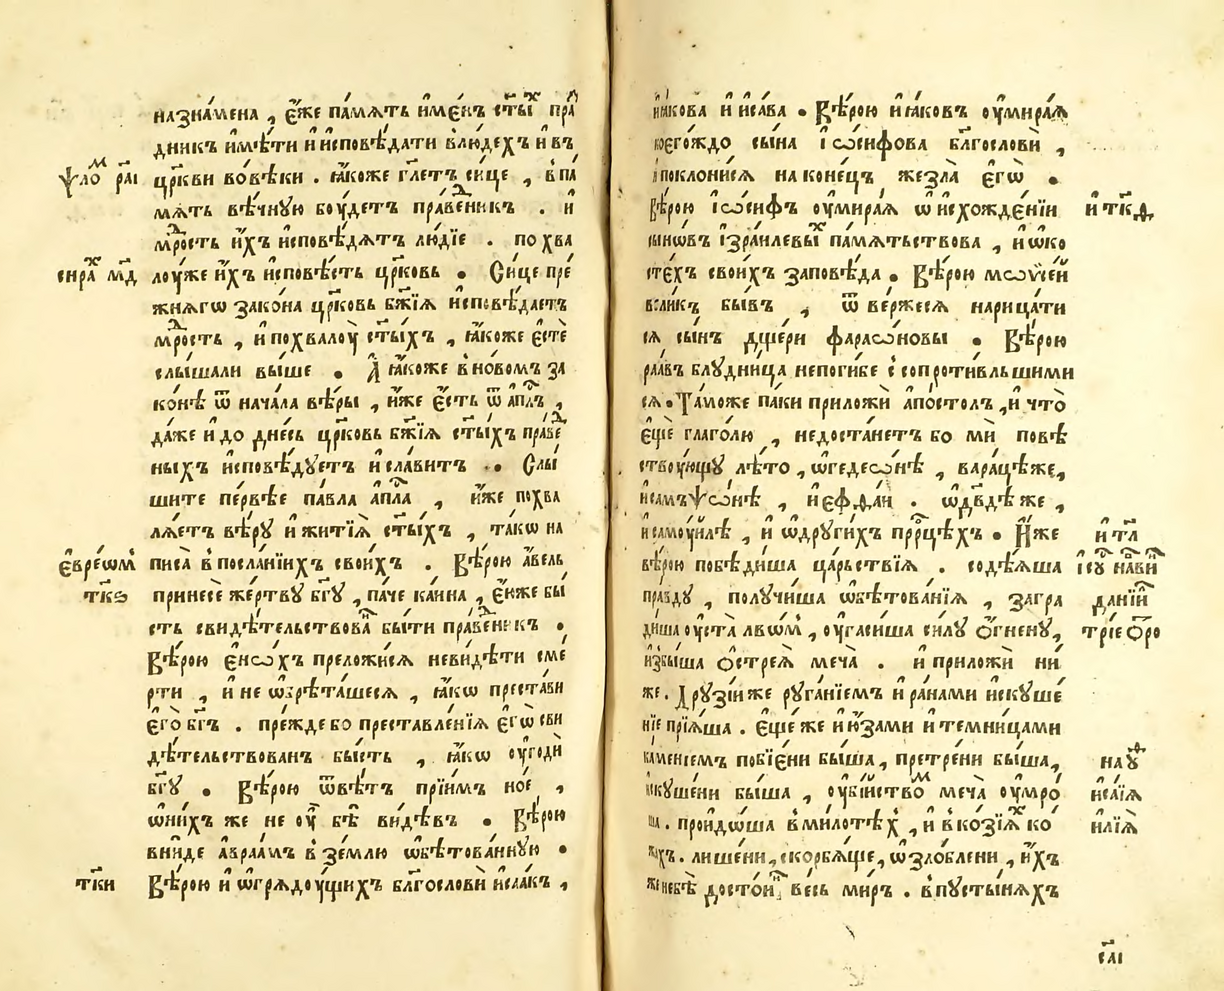 назна́мена , є҆́же па́мѧть и҆ме́нъ ст҃ы́ⷯ пра́ⷡ
дникъ и҆мѣ́ти и҆ и҆сповѣ́дати влю́дехъ и҆ въ
ѱло́ⷨ р҃аі
цр҃кви во́вѣки . ꙗ҆́коже гл҃етъ си́це , в па́
мѧть вѣ́чнꙋю бꙋ́детъ пра́веⷣникъ . и҆
мⷣрость и҆́хъ и҆сповѣ́дѧтъ лю́дїе . по хва
сира́ⷯ м҃д
лꙋ́же и҆́хъ и҆сповѣ́сть цр҃ковь . Си́це пре́
жнѧгѡ зако́на цр҃ковь бж҃їѧ и҆сповѣ́даетъ
мⷣрость , и҆ похвалꙋ̀ ст҃ы́хъ , ꙗ҆́коже є҆стѐ
слы́шали вы́ше . А҆ ꙗ҆́коже в но́вомъ за
ко́нѣ ѿ нача́ла вѣ́ры , и҆́же є҆́сть ѿ а҆пⷭ҇лъ ,
да́же и҆ до дне́сь цр҃ковь бж҃їѧ ст҃ы́хъ пра́веⷣ
ныхъ и҆сповѣ́дꙋетъ и҆ сла́витъ . Слы́
шите пе́рвѣе па́вла а҆пⷭ҇ла , и҆́же похва
лѧ́етъ вѣ́рꙋ и҆ житїѧ̀ ст҃ы́хъ , та́кѡ на
є҆вре́ѡмⸯ
писа̀ в посла́нїихъ свои́хъ . Вѣ́рою а҆́вель
т҃кѕ
принесѐ же́ртвꙋ бг҃ꙋ , па́че ка́ина , є҆́юже бы́
сть свидѣ́тельствоваⷩ бы́ти пра́веⷣникъ .
Вѣ́рою є҆нѡ́хъ преложи́сѧ неви́дѣти сме́
рти , и҆ не ѡ҆брѣта́шесѧ , ꙗ҆́кѡ преста́ви
є҆го̀ бг҃ъ . пре́жде бо преставле́нїѧ є҆гѡ̀ сви
дѣ́тельствованъ бы́сть , ꙗ҆́кѡ ᲂу҆годѝ
бг҃ꙋ . Вѣ́рою ѿвѣ́тъ прїи́мъ но́е ,
ѡ҆ни́хъ же не ᲂу҆̀ бѣ̀ ви́дѣвъ . Вѣ́рою
вни́де а҆враа́мъ в зе́млю ѡ҆бѣтова́ннꙋю .
т҃ки
Вѣ́рою и҆ ѡ҆грѧдꙋ́щихъ блг҃ословѝ и҆саа́къ ,
и҆а́кова и҆ и҆са́ва . Вѣ́рою и҆а́ковъ ᲂу҆мира́ѧ
коего́ждо сы́на і҆ѡ́сифова блг҃ословѝ ,
и҆ поклони́сѧ на коне́цъ жезла̀ є҆гѡ̀ .
Вѣ́рою і҆ѡ́сифъ ᲂу҆мира́ѧ ѡ҆ и҆схожде́нїи
и҆ т҃кѳ
сынѡ́въ і҆зра́илевыⷯ па́мѧтьствова , и҆ ѡ҆ко
сте́хъ свои́хъ запо́вѣда . Вѣ́рою мѡѷсе́й
вели́къ бы́въ , ѿ ве́ржесѧ нарица́ти
сѧ сы́нъ дще́ри фараѡ́новы . Вѣ́рою
раа́въ блꙋдни́ца непоги́бе с сопроти́вльшими
сѧ . Та́може па́ки приложѝ а҆по́столъ , и҆ что̀
є҆щѐ глаго́лю , недоста́нетъ бо мѝ повѣ́
ствꙋ́ющꙋ лѣ́то , ѡ҆гедеѡ́нѣ , вара́цѣже ,
и҆ самъѱѡ́нѣ , и҆ є҆фѳа́и . ѡ҆ дв҃дѣ же ,
и҆ самоу́илѣ , и҆ ѡ҆ други́хъ прⷪ҇ро́цѣхъ . И҆̀же
и҆ т҃л
вѣ́рою побѣди́ша ца́рьствїѧ . содѣ́ѧша
і҆сꙋ̑ⷭ нави́ⷩ
пра́вдꙋ , получи́ша ѡ҆бѣтова́нїѧ , загра
данїи́ⷧ
ди́ша ᲂу҆ста̀ льво́мⸯ , ᲂу҆гаси́ша си́лꙋ ѻ҆́гненꙋ ,
трїе ѻ҆́тро
и҆збы́ша ѻ҆стреѧ̀ меча̀ . и҆ приложѝ ни́
же . Дрꙋзі́и же рꙋга́нїемъ и҆ ра́нами и҆скуше́
нїе прїѧ́ша . є҆ще́ же и҆ ю҆́зами и҆ темни́цами
ка́менїемъ побїє́ни бы́ша , претре́ни бы́ша ,
наꙋⷴ
и҆скуше́ни бы́ша , ᲂу҆бі́йствоⷨ меча̀ ᲂу҆мро́
и҆са́їѧ
ша . проидо́ша в ми́лотеⷯ , и҆ в ко́зїѧⷯ ко́
и҆лїѧ̀
жахъ . лише́ни , скорбѧ́ще , ѡ҆зло́блени , и҆́хъ
же небѣ̀ досто́иⷩ ве́сь ми́ръ . в пусты́нѧхъ
с҃аі